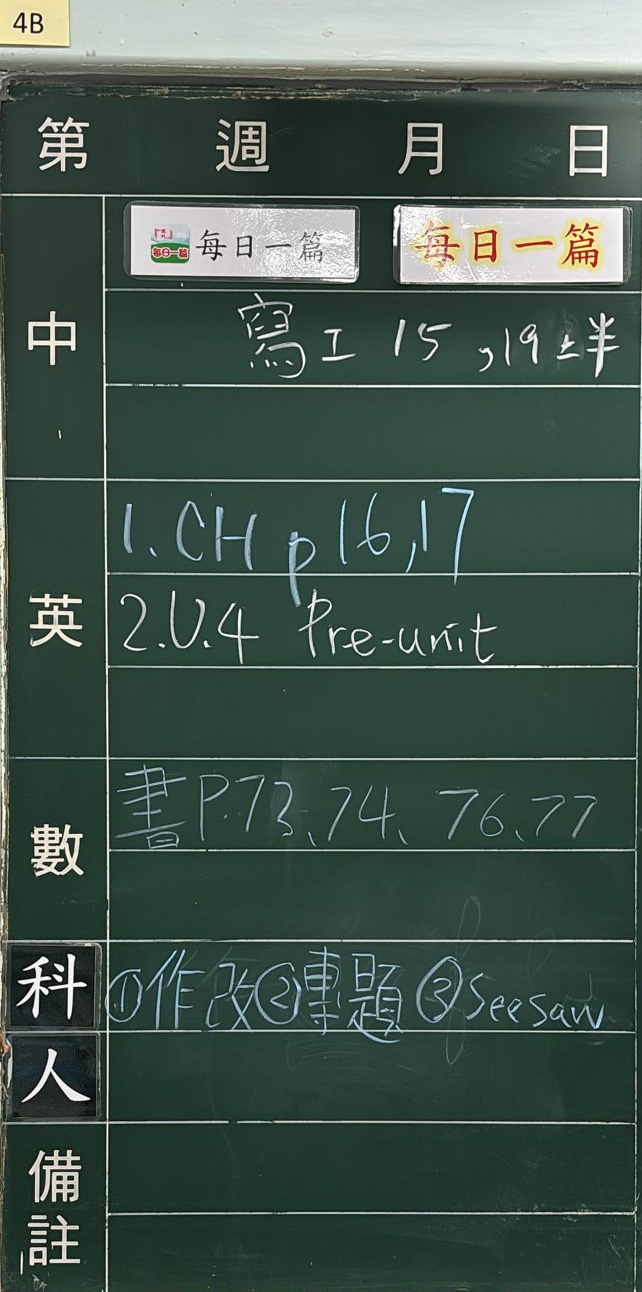 4B
第 週 月 日
每日一篇 每日一篇 每日一篇
中
寫工 15 , 19上半
英
1. CH p16,17
2. U.4 Pre-unit
數
書P.73、74、76、77
科
①作改②專題③Seesaw
人
備註